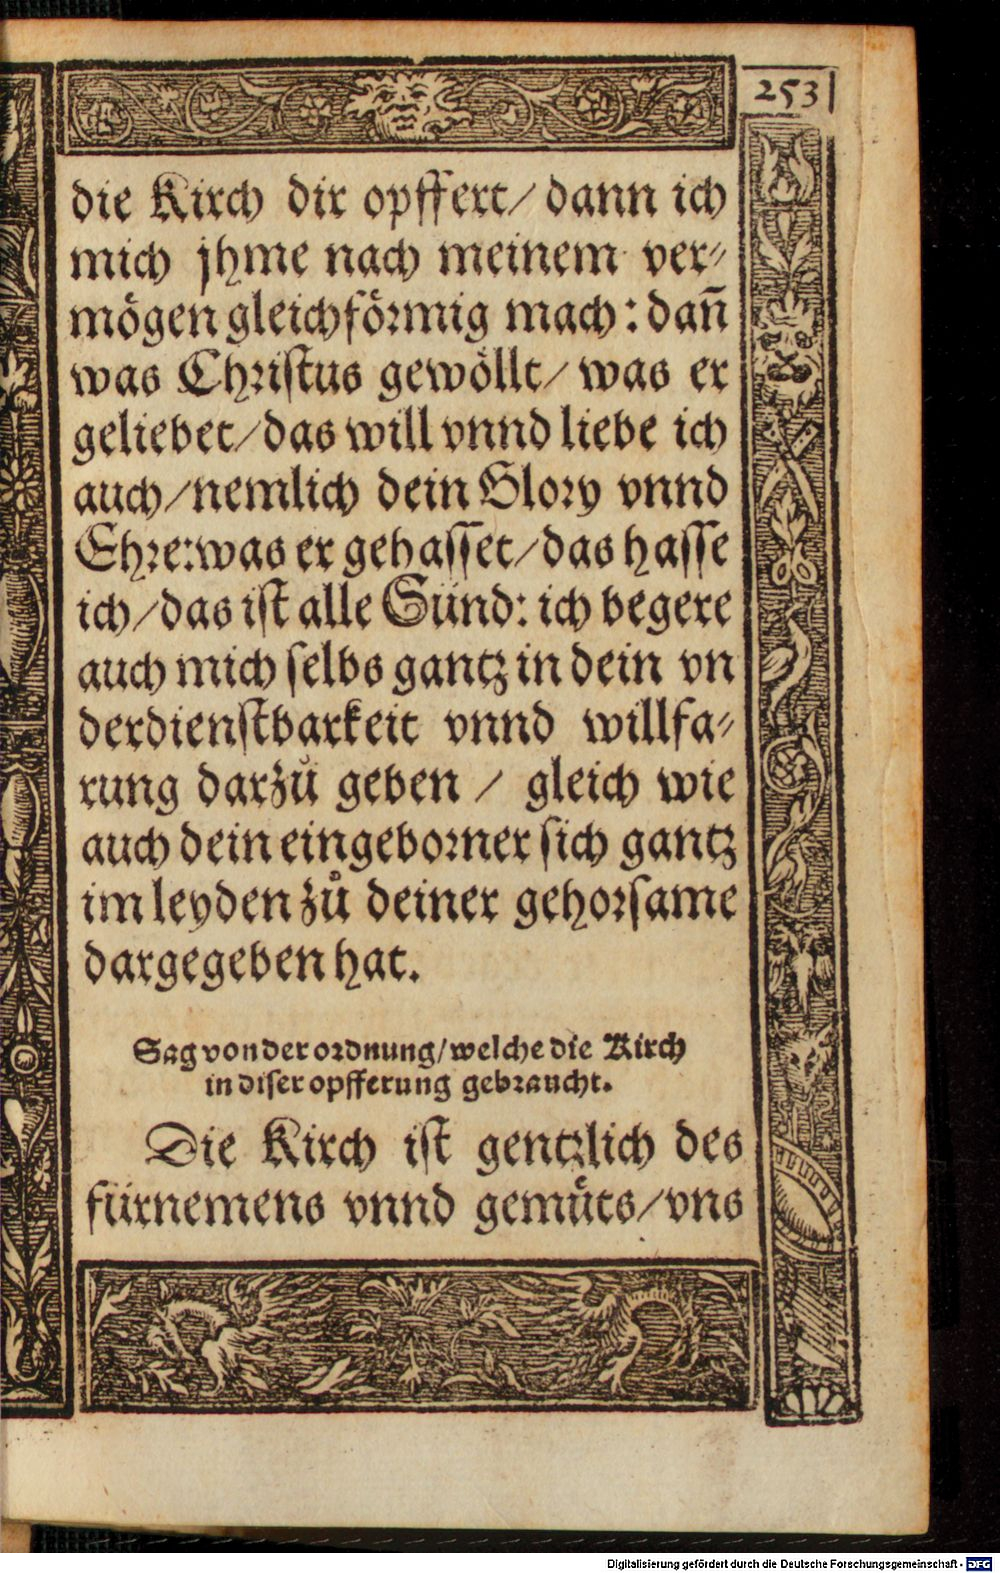 253
die Kirch dir opffert/ dann ich
mich jhme nach meinem ver⸗
mögen gleichförmig mach: dañ
was Christus gewöllt/ was er
geliebet/ das will vnnd liebe ich
auch/ nemlich dein Glory vnnd
Ehre: was er gehasset/ das hasse
ich/ das ist alle Sünd: ich begere
auch mich selbs gantz in dein vn
derdienstbarkeit vnnd willfa⸗
rung darzů geben / gleich wie
auch dein eingeborner sich gantz
im leyden zů deiner gehorsame
dargegeben hat.
Sag von der ordnung/ welche die Kirch
in diser opfferung gebraucht.
Die Kirch ist gentzlich des
fürnemens vnnd gemüts/ vns
Digitalisierung gefördert durch die Deutsche Forschungsgemeinschaft - DFG